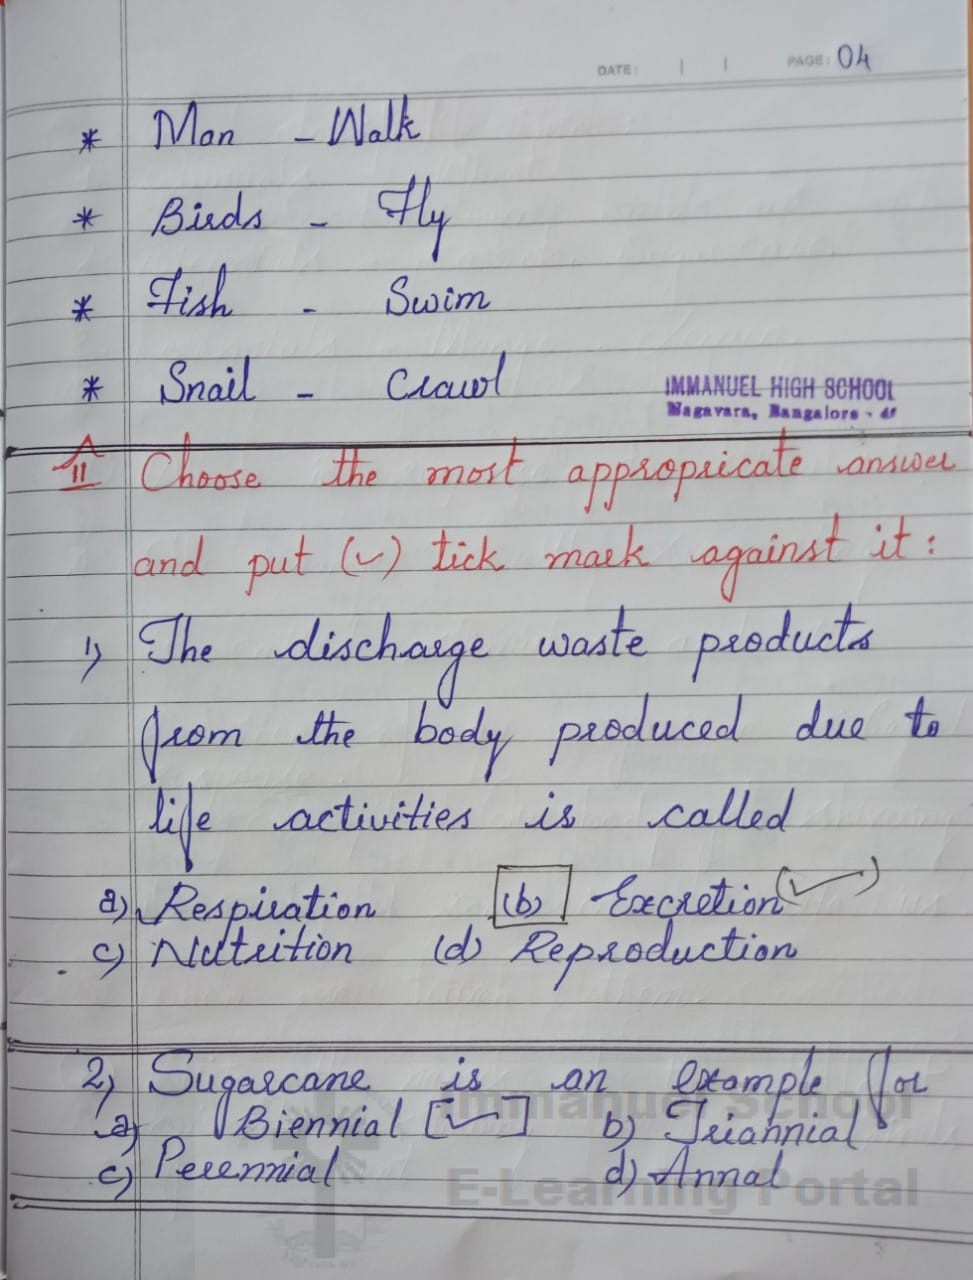 DATE: | | PAGE: 04
* Man - Walk
* Birds - Fly
* Fish - Swim
* Snail - Crawl
IMMANUEL HIGH SCHOOL
Nagavara, Bangalore - 45
II Choose the most appropricate answer
and put (✓) tick mark against it:
1) The discharge waste products
from the body produced due to
life activities is called
a) Respiration (b) Excretion (✓)
c) Nutrition (d) Reproduction
2) Sugarcane is an example for
a) Biennial [✓] b) Triannial
c) Perennial d) Annal
Immanuel School
E-Learning Portal